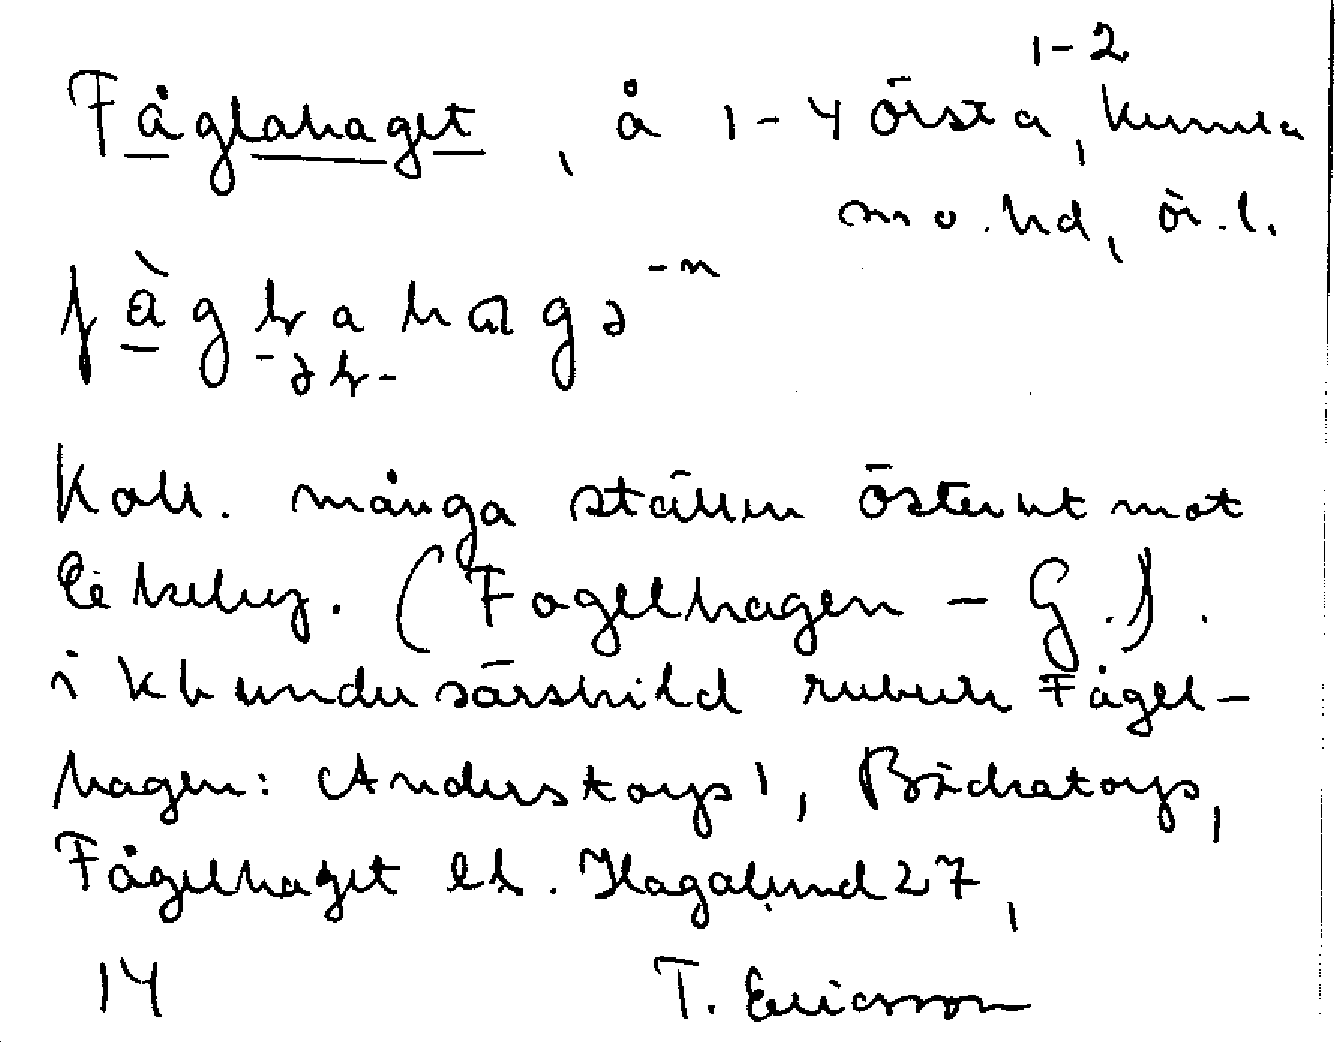 1-2
Fåglahaget, å 1-4 Örsta, Kumla
m o. hd, ör. l.
-n
fàgɭahɑgə
-əɭ-
Koll. många ställen österut mot
Ekeby. (Fogelhagen - G.).
i kb under särskild rubrik Fågel-
hagen: Anderstorp 1, Bäckatorp,
Fågelhaget el. Hagalund 27,
14 T. Ericsson